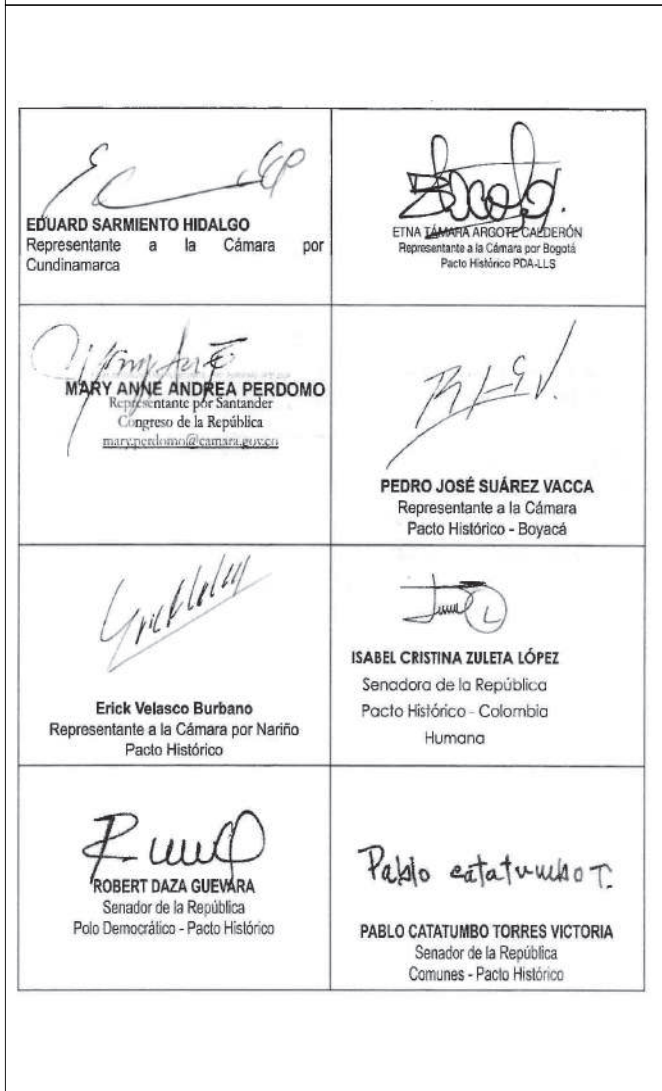 EDUARD SARMIENTO HIDALGO
Representante a la Cámara por
Cundinamarca
ETNA TÁMARA ARGOTE CALDERÓN
Representante a la Cámara por Bogotá
Pacto Histórico PDA-LLS
MARY ANNE ANDREA PERDOMO
Representante por Santander
Congreso de la República
mary.perdomo@camara.gov.co
PEDRO JOSÉ SUÁREZ VACCA
Representante a la Cámara
Pacto Histórico - Boyacá
Erick Velasco Burbano
Representante a la Cámara por Nariño
Pacto Histórico
ISABEL CRISTINA ZULETA LÓPEZ
Senadora de la República
Pacto Histórico - Colombia
Humana
ROBERT DAZA GUEVARA
Senador de la República
Polo Democrático - Pacto Histórico
Pablo catatumbo T.
PABLO CATATUMBO TORRES VICTORIA
Senador de la República
Comunes - Pacto Histórico